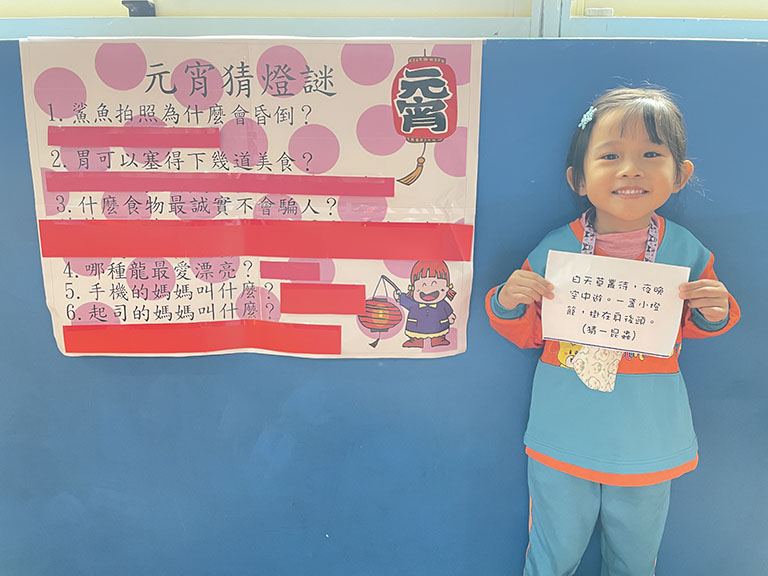 元宵猜燈謎
元宵
1. 鯊魚拍照為什麼會昏倒？
2. 胃可以塞得下幾道美食？
3. 什麼食物最誠實不會騙人？
4. 哪種龍最愛漂亮？
5. 手機的媽媽叫什麼？
6. 起司的媽媽叫什麼？
白天草待，夜晚
空中遊。一盞小燈
籠，掛在身後頭。
(猜一昆蟲)